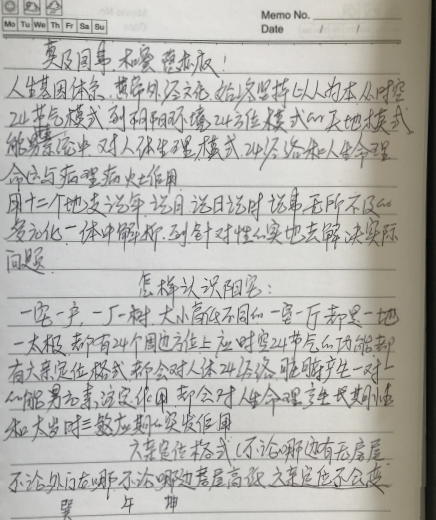 Memo No.
Mo Tu We Th Fr Sa Su
Date / /
莫及回弟 和要 整求版!
人生基因体系 黄帝外经文化 始终坚持以人为本从时空
24节气模式 到阴阳环境24方位模式的实地模式
能易系统中 对人体生理模式 24经络和人生命理
命位与病理病灶作用
用十二个地支说年 说月 说日说时 说事 无所不及的
多元化一体中解析 到针对性的实地去解决实际
问题
怎样认识阳宅:
一宅一户 一厂一树 大小高低不同的一室一厅 都是一地
一太极 都有24个周边方位上应时空24节气的功能 都
有六亲定位格式 都会对人体24经络 脏腑产生一对一
的能易元素设定作用 都会对人生命理产生长期性
和大岁时三数应期的突发作用
六亲定位格式(不论哪边有无房屋
不论外门在哪 不论哪边房屋高低 六亲定位不会变
巽 午 坤